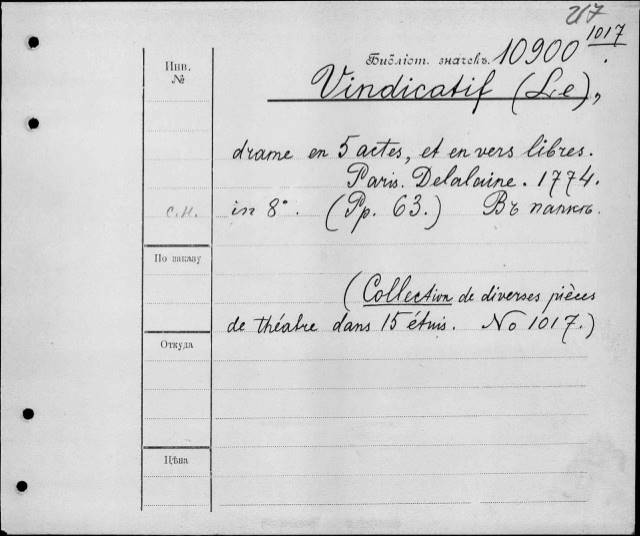 217
Инв.
№
Библіот. значекъ. 10900 1017.
Vindicatif (Le),
drame en 5 actes, et en vers libres.
Paris. Delalaine. 1774.
с.н. in 8°. (Pp. 63.) Въ папкѣ.
По заказу
(Collection de diverses pièces
de théatre dans 15 étuis. No 1017.)
Откуда
Цѣна